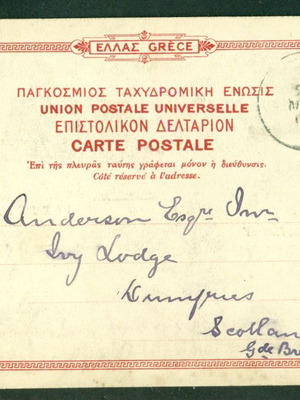 ΕΛΛΑΣ GRÈCE
ΠΑΓΚΟΣΜΙΟΣ ΤΑΧΥΔΡΟΜΙΚΗ ΕΝΩΣΙΣ
UNION POSTALE UNIVERSELLE
ΕΠΙΣΤΟΛΙΚΟΝ ΔΕΛΤΑΡΙΟΝ
CARTE POSTALE
Ἐπὶ τῆς πλευρᾶς ταύτης γράφεται μόνον ἡ διεύθυνσις.
Côté réservé à l'adresse.
Anderson Esqre
Ivy Lodge
Dumfries
Scotlan
Gde Br